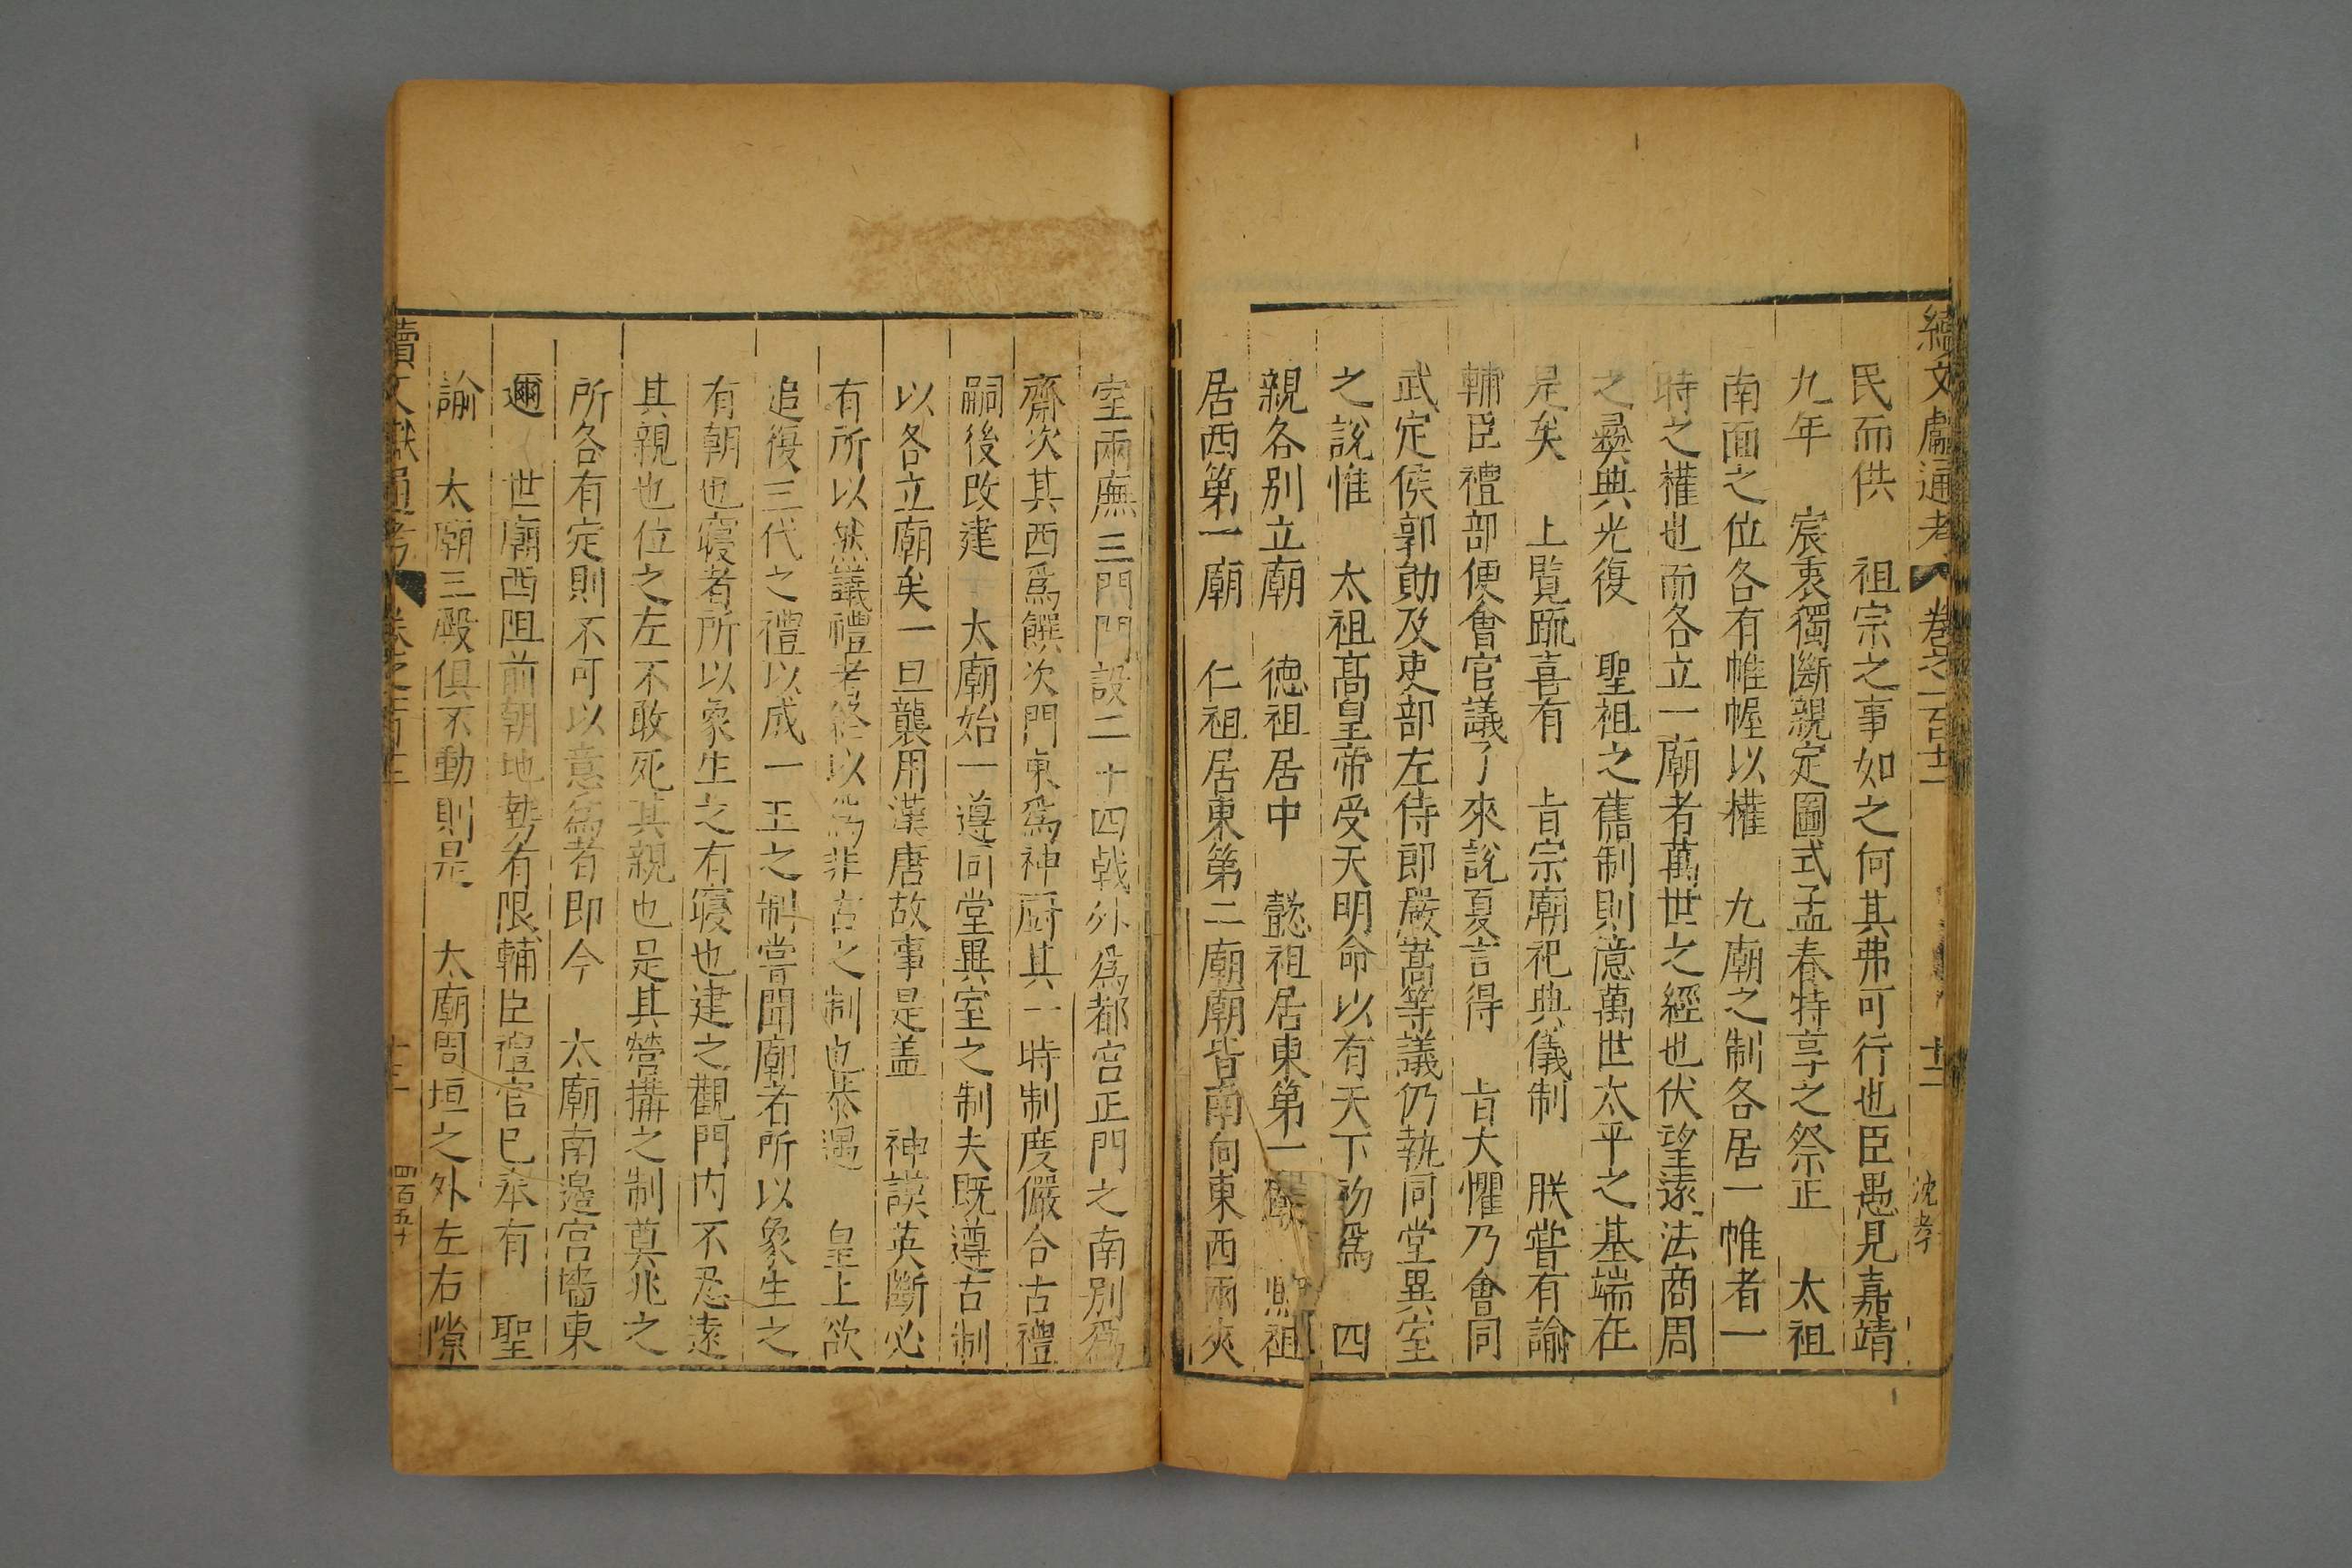 續文獻通考 卷之一百十二 十二 沈孝
民而供 祖宗之事如之何其弗可行也臣愚見嘉靖
九年 宸衷獨斷親定圖式孟春特享之祭正 太祖
南面之位各有帷幄以權 九廟之制各居一帷者一
時之權也而各立一廟者萬世之經也伏望遠法商周
之彞典光復 聖祖之舊制則億萬世太平之基端在
是矣 上覧疏喜有 旨宗廟祀典儀制 朕嘗有諭
輔臣禮部便會官議了來說夏言得 旨大懼乃會同
武定侯郭勛及吏部左侍郎嚴嵩等議仍執同堂異室
之說惟 太祖髙皇帝受天明命以有天下初爲 四
親各別立廟 德祖居中 懿祖居東第一廟 熙祖
居西第一廟 仁祖居東第二廟廟皆南向東西兩夾
室兩廡三門門設二十四戟外爲都宫正門之南別爲
齋次其西爲饌次門東爲神厨其一時制度儼合古禮
嗣後改建 太廟始一遵同堂異室之制夫既遵古制
以各立廟矣一旦襲用漢唐故事是盖 神謨英斷必
有所以然議禮者終以爲非古之制也恭遇 皇上欲
追復三代之禮以成一王之制嘗聞廟者所以象生之
有朝也寢者所以象生之有寢也建之觀門内不忍遠
其親也位之左不敢死其親也是其營搆之制莫兆之
所各有定則不可以意爲者即今 太廟南邉宫墻東
邇 世廟西阻前朝地勢有限輔臣禮官已奉有 聖
諭 太廟三殿俱不動則是 太廟周垣之外左右隙
續文獻通考 卷之一百十二 十二 四百五十